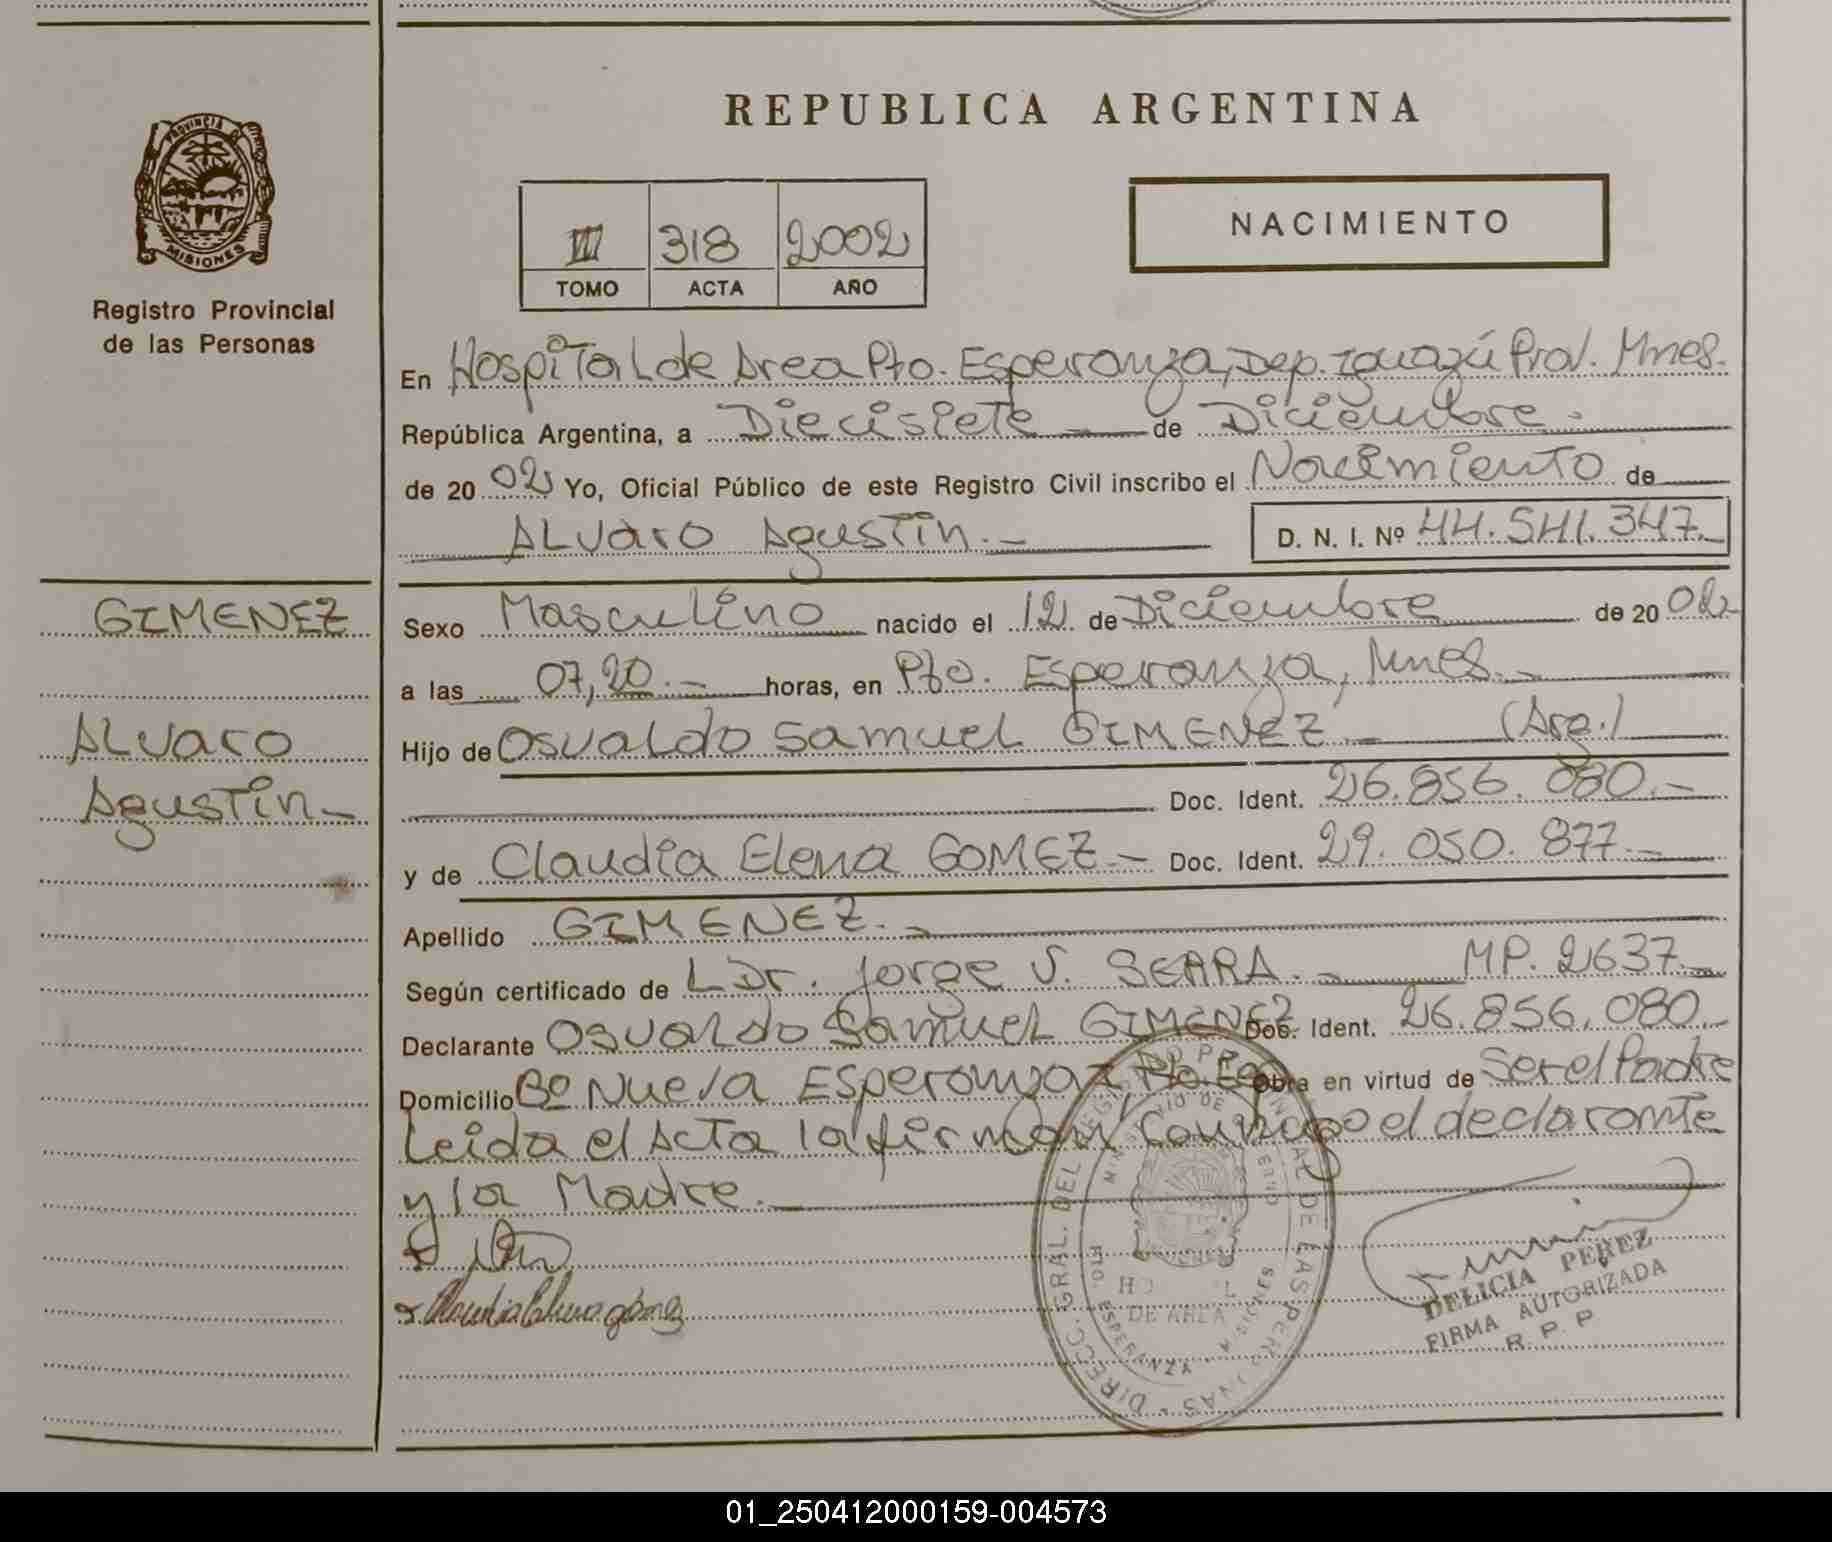 REPUBLICA ARGENTINA
PROVINCIA DE
MISIONES
Registro Provincial
de las Personas
III 318 2002
TOMO ACTA AÑO
NACIMIENTO
En Hospital de Area Pto. Esperanza, Dep. Iguazú Prov. Mnes.
República Argentina, a Diecisiete de Diciembre.
de 2002 Yo, Oficial Público de este Registro Civil inscribo el Nacimiento de
ALvaro Agustin.- D. N. I. Nº 44.541.347.-
GIMENEZ
ALvaro
Agustin-
Sexo Masculino nacido el 12 de Diciembre de 2002
a las 07,20.- horas, en Pto. Esperanza, Mnes.-
Hijo de Osvaldo Samuel GIMENEZ.- (Arg.)
Doc. Ident. 26.856.080.-
y de Claudia Elena GOMEZ.- Doc. Ident. 29.050.877.-
Apellido GIMENEZ.-
Según certificado de L Dr. Jorge V. SEARA.- MP. 2637.-
Declarante Osvaldo Samuel GIMENEZ Doc. Ident. 26.856.080.-
Domicilio Bº Nueva Esperanza Pto. Esp Obra en virtud de Ser el Padre
Leida el Acta la firman conmigo el declarante
y la Madre.
DIRECC. GRAL. DEL REGISTRO PROVINCIAL DE LAS PERSONAS
PTO. ESPERANZA - MISIONES
DE AREA
DELICIA PEREZ
FIRMA AUTORIZADA
R. P. P
01_250412000159-004573